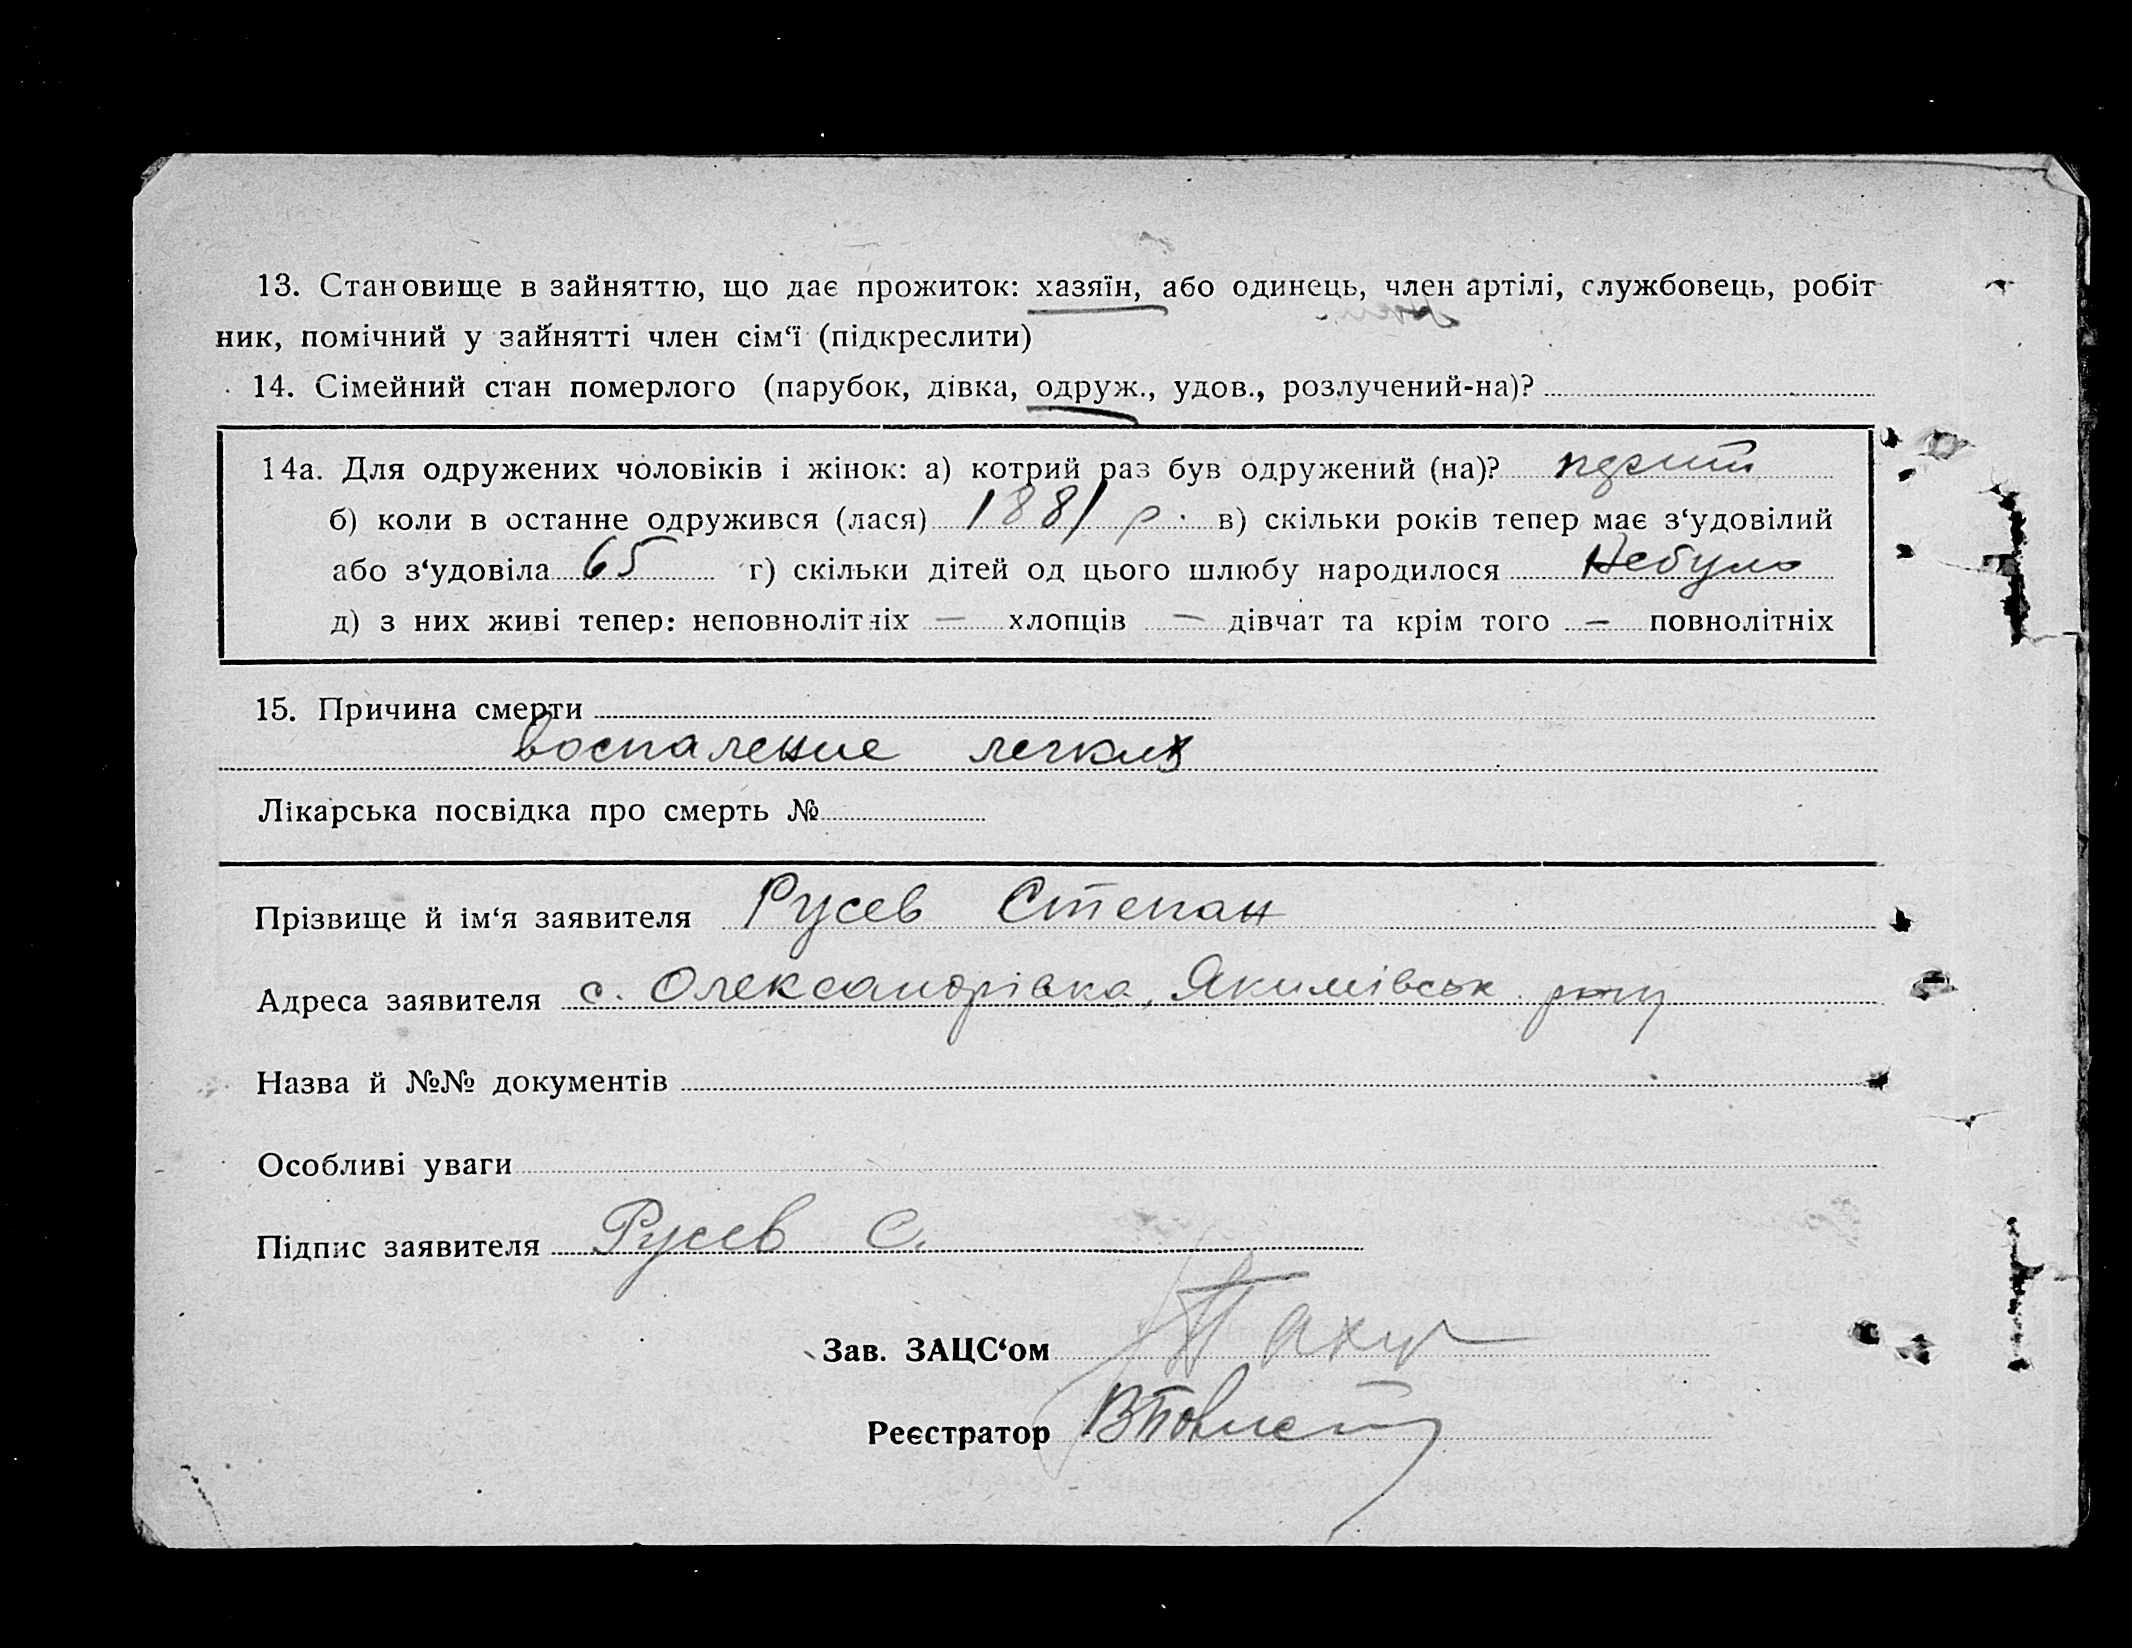 13. Становище в зайняттю, що дає прожиток: хазяїн, або одинець, член артілі, службовець, робіт
ник, помічний у зайнятті член сім‘ї (підкреслити)
14. Сімейний стан померлого (парубок, дівка, одруж., удов., розлучений-на)?
14а. Для одружених чоловіків і жінок: а) котрий раз був одружений (на)?
б) коли в останне одружився (лася) 1881 р. в) скільки років тепер має з‘удовілий
або з‘удовіла 65 г) скільки дітей од цього шлюбу народилося Небуло
д) з них живі тепер: неповнолітніх — хлопців — дівчат та крім того — повнолітніх
15. Причина смерти
воспаление легких
Лікарська посвідка про смерть №
Прізвище й ім‘я заявителя Русев Степан
Адреса заявителя с. Олександрівка, Якимівськ р-ну
Назва й №№ документів
Особливі уваги
Підпис заявителя Русев С.
Зав. ЗАЦС‘ом
Реєстратор